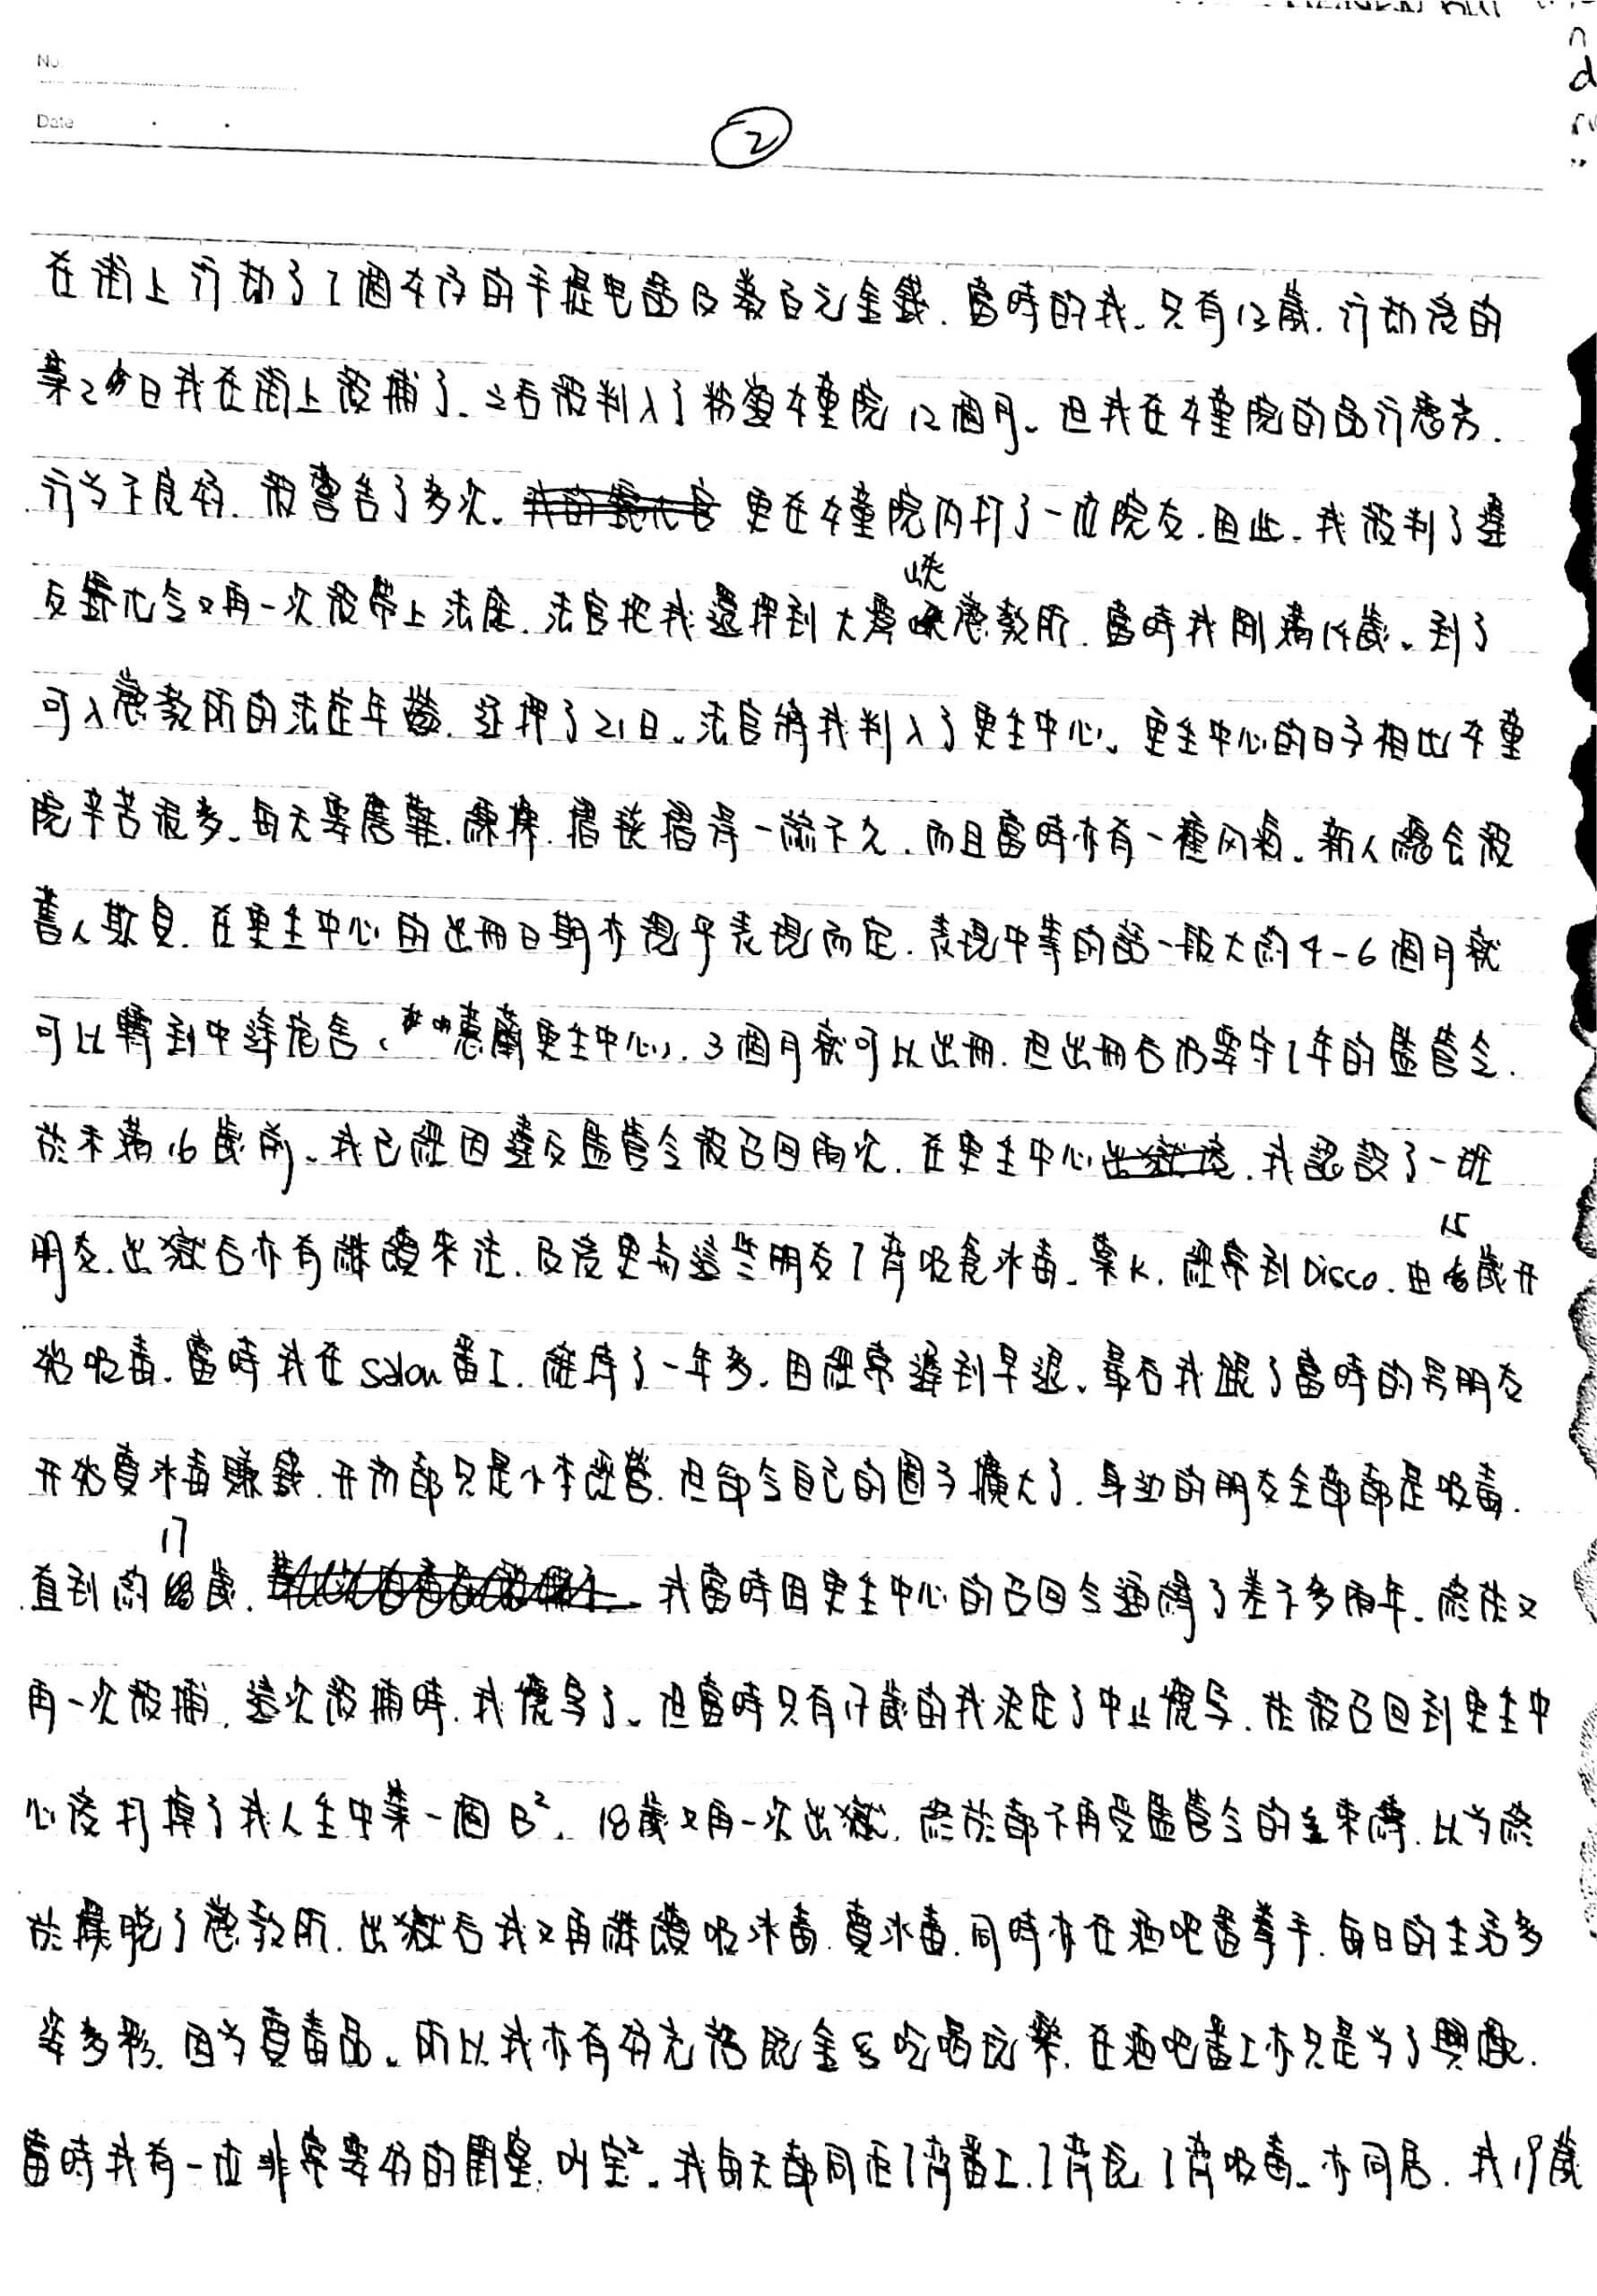 No.
Date
2
在街上行劫了1個女仔的手提电話及數百元金錢.當時的我.只有13歲.行劫後的
第2日我在街上被捕了.之后被判入了粉嶺女童院12個月.但我在女童院的品行悪劣.
行为不良好.被警告了多次.更在女童院內打了一位院友.因此.我被判了違
反羈化令又再一次被帶上法庭.法官把我還押到大欖峽懲教所.當時我剛滿14歲.到了
可入懲教所的法定年齡.还押了21日.法官將我判入了更生中心.更生中心的日子相比女童
院辛苦很多.每天要磨難.練操.摺毯摺得一絲不久.而且當時亦有一種风氣.新人總会被
舊人欺負.在更生中心的出冊日期亦視乎表現而定.表現中等的話一般大約4-6個月就
可以轉到中途宿舍("蕙蘭更生中心").3個月就可以出冊.但出冊后仍要守1年的監管令.
於未滿16歲前.我已經因違反監管令被召回兩次.在更生中心.我認識了一班
朋友.出獄后亦有繼續來往.及後更与這些朋友1齊吸食冰毒.索K.經常到Disco.由15歲开
始吸毒.當時我在salon番工.維持了一年多.因經常遲到早退.最后我跟了當時的男朋友
开始賣冰毒賺錢.开初都只是小本經營.但卻令自己的圈子擴大了.身边的朋友全部都是吸毒.
直到約17歲.我當時因更生中心的召回令通緝了差不多兩年.終於又
再一次被捕.這次被捕時.我懷孕了.但當時只有17歲的我決定了中止懷孕.於被召回到更生中
心後打掉了我人生中第一個B².18歲又再一次出獄.終於都不再受監管令的約束.以为終
於擺脫了懲教所.出獄后我又再繼續吸冰毒.賣冰毒.同時亦在酒吧當拳手.每日的生活多
姿多彩.因为賣毒品.所以我亦有好充裕既金錢吃喝玩樂.在酒吧番工亦只是为了興趣.
當時我有一位非常要好的閨蜜.叫宝².我每天都同佢1齊番工.1齊玩1齊吸毒.亦同居.我19歲